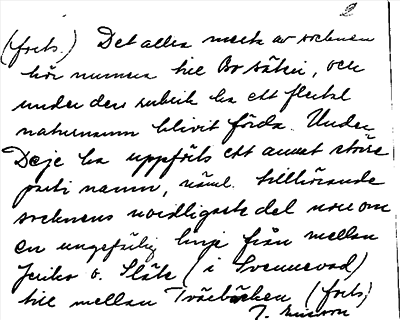 2
(forts.) Det allra mesta av socknen
hör numera till Bo säteri, och
under den rubrik ha ett flertal
naturnamn blivit förda. Under
Deje ha uppförts ett annat större
parti namn, näml. tillhörande
socknens nordligaste del norr om
en ungefärlig linje från mellan
o. Släte (i Svennevad)
till mellan (forts)